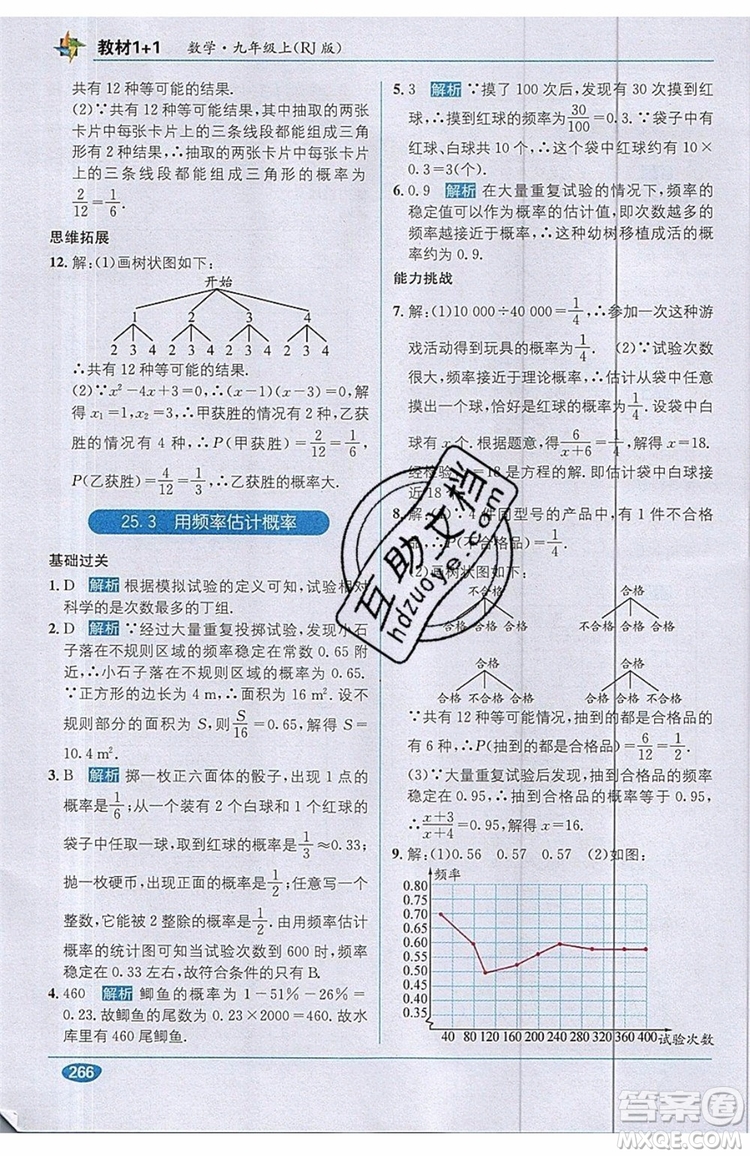 教材1+1 数学·九年级上(RJ版)
共有 12 种等可能的结果.
(2)∵共有 12 种等可能的结果,其中抽取的两张
卡片中每张卡片上的三条线段都能组成三角形
的有 2 种结果,∴抽取的两张卡片中每张卡片
上的三条线段都能组成三角形的概率为
2/12=1/6.
思维拓展
12. 解:(1)画树状图如下:
开始
1 2 3 4
2 3 4 1 3 4 1 2 4 1 2 3
∴共有 12 种等可能的结果.
(2)∵x²-4x+3=0,∴(x-1)(x-3)=0,解
得 x₁=1,x₂=3,∴甲获胜的情况有 2 种,乙获
胜的情况有 4 种,∴P(甲获胜)=2/12=1/6,
P(乙获胜)=4/12=1/3,∴乙获胜的概率大.
25.3 用频率估计概率
基础过关
1. D 解析 根据模拟试验的定义可知,试验相对
科学的是次数最多的丁组.
2. D 解析 ∵经过大量重复投掷试验,发现小石
子落在不规则区域的频率稳定在常数 0.65 附
近,∴小石子落在不规则区域的概率为 0.65.
∵正方形的边长为 4 m,∴面积为 16 m². 设不
规则部分的面积为 S,则 S/16=0.65,解得 S=
10.4 m².
3. B 解析 掷一枚正六面体的骰子,出现 1 点的
概率为1/6;从一个装有 2 个白球和 1 个红球的
袋子中任取一球,取到红球的概率为1/3≈0.33;
抛一枚硬币,出现正面的概率为1/2;任意写一个
整数,它能被 2 整除的概率为1/2. 由用频率估计
概率的统计图可知当试验次数到 600 次时频率
稳定在 0.33 左右,故符合条件的只有 B.
4. 460 解析 鲫鱼的概率为 1-51%-26%=
0.23. 故鲫鱼的尾数为 0.23×2000=460. 故水
库里有 460 尾鲫鱼.
266
5. 3 解析 ∵摸了 100 次后,发现有 30 次摸到红
球,∴摸到红球的频率为30/100=0.3. ∵袋子中有
红球、白球共 10 个,∴这个袋中红球约有 10×
0.3=3(个).
6. 0.9 解析 在大量重复试验的情况下,频率的
稳定值可以作为概率的估计值,即次数越多的
频率越接近于概率,∴这种幼树移植成活的概
率约为 0.9.
能力挑战
7. 解:(1)10 000÷40 000=1/4,∴参加一次这种游
戏活动得到玩具的概率为1/4. (2)∵试验次数
很大,频率接近于理论概率,∴估计从袋中任意
摸出一个球,恰好是红球的概率为1/4. 设袋中白
球有 x 个. 根据题意,得6/(x+6)=1/4,解得 x=18.
经检验,x=18 是方程的解.即估计袋中白球接
近 18
8. 解:(1)∵4 件同型号的产品中,有 1 件不合格
品,∴P(不合格品)=1/4.
(2)画树状图如下:
不合格 合格
合格 合格 合格 不合格 合格 合格
合格 合格
不合格 合格 合格 不合格 合格 合格
∵共有 12 种等可能情况,抽到的都是合格品的
有 6 种,∴P(抽到的都是合格品)=6/12=1/2.
(3)∵大量重复试验后发现,抽到合格品的频率
稳定在 0.95,∴抽到合格品的概率等于 0.95,
∴(x+3)/(x+4)=0.95,解得 x=16.
9. 解:(1)0.56 0.57 0.57 (2)如图:
频率
0.80
0.75
0.70
0.65
0.60
0.55
0.50
0.45
0.40
0.35
40 80 120 160 200 240 280 320 360 400 试验次数
互助文档
hdzuoye.com
答案圈
MXQE.COM